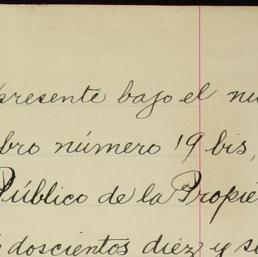 presente bajo el nu
bro número 19 bis,
Público de la Propie
doscientos diez y s